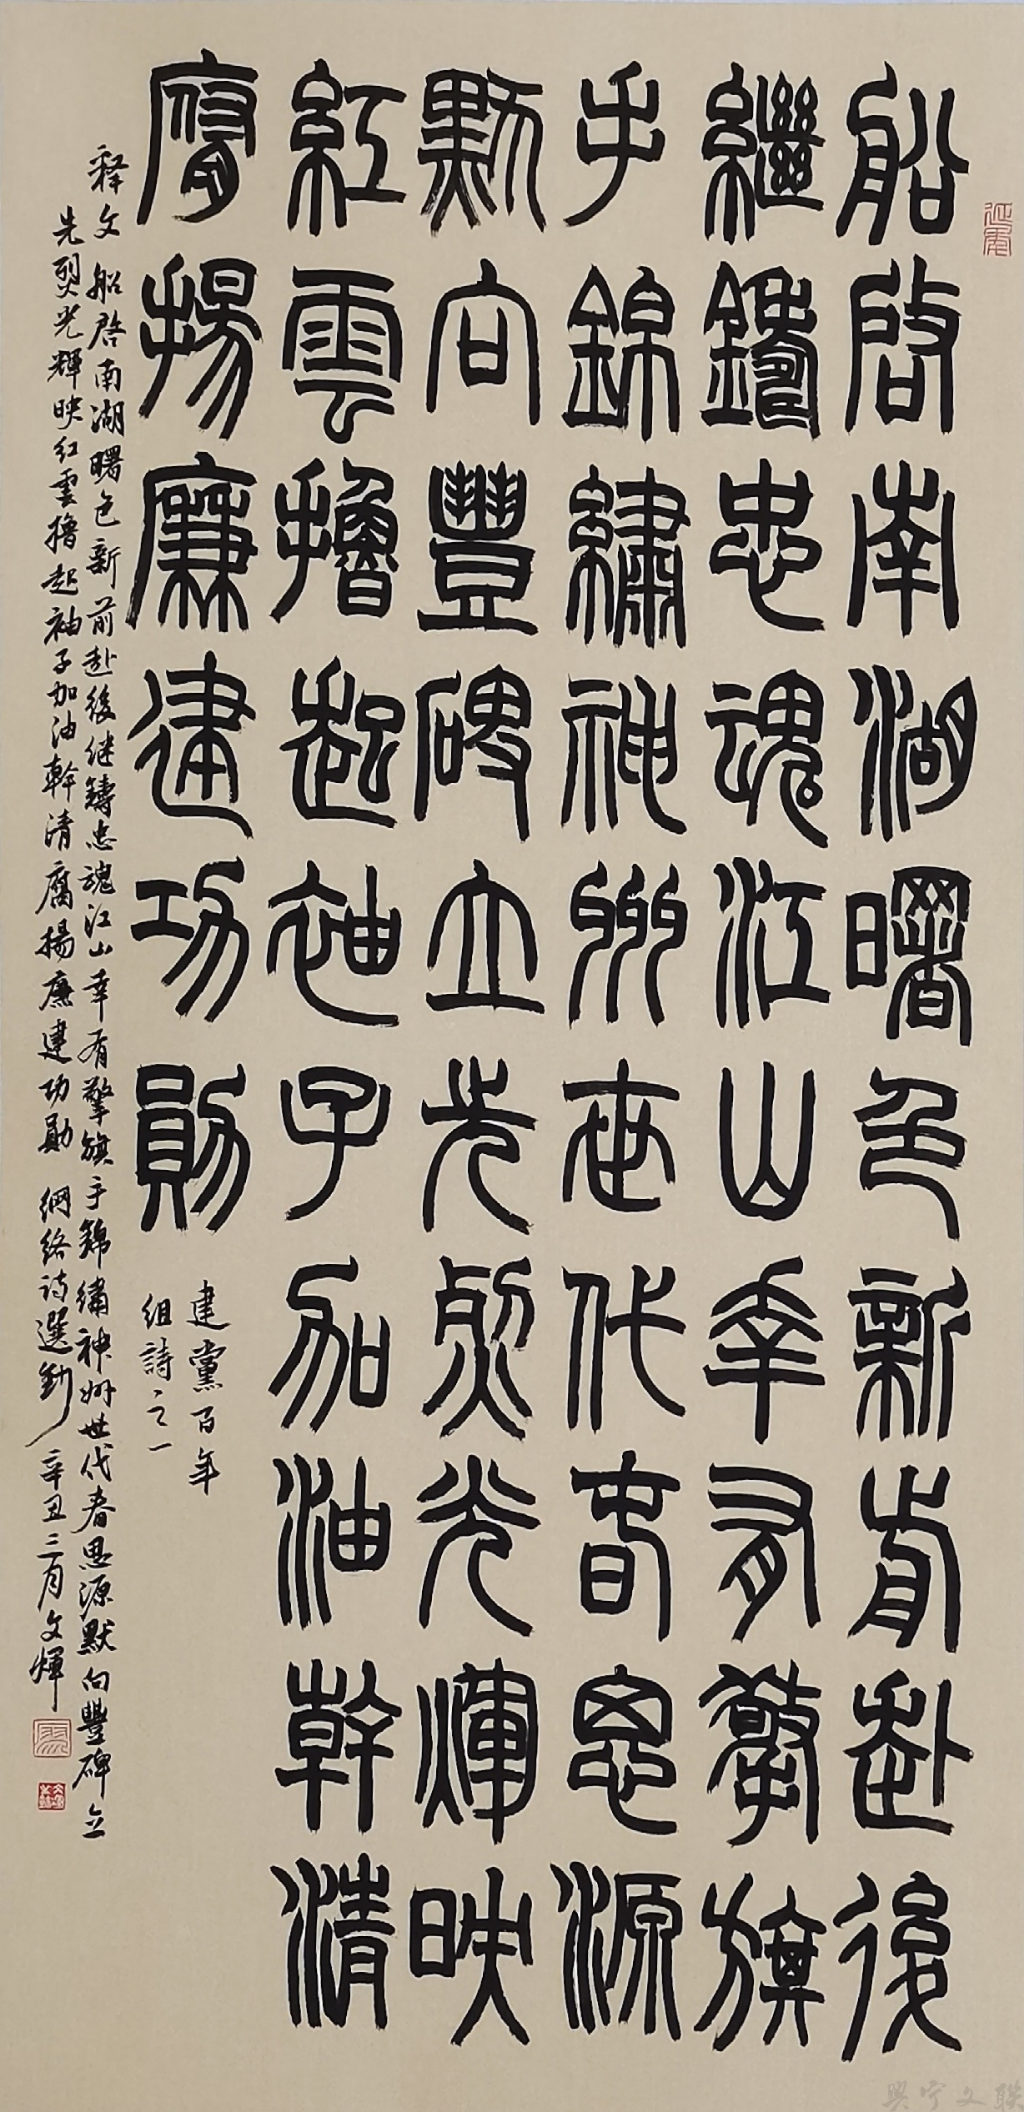 船啓南湖曙色新前赴後
繼鑄忠魂江山幸有擎旗
手錦繡神州世代春思源
默向豐碑立先烈光輝映
紅雲擼起袖子加油幹清
腐揚廉建功勛
建黨百年
組詩之一
释文 船啓南湖曙色新前赴後继鑄忠魂江山幸有擎旗手錦繡神州世代春思源默向豐碑立
先烈光輝映红雲擼起袖子加油幹清腐揚廉建功勛 網络诗選勤 辛丑三月文輝
興宁文联